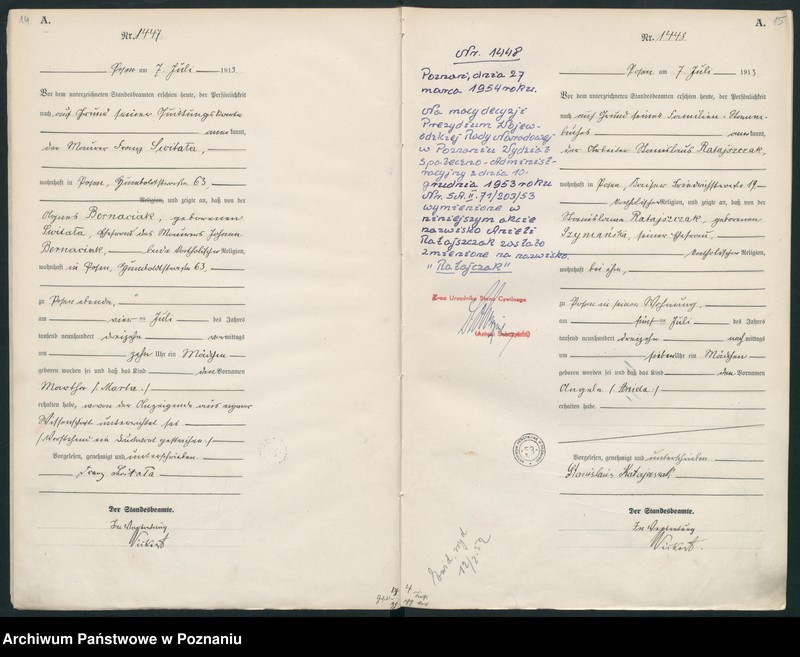 14
A.
Nr. 1447
Posen am 7. Juli 1913
Vor dem unterzeichneten Standesbeamten erschien heute, der Persönlichkeit
nach auf Grund seiner Quittungskarte
kannt,
der Maurer Franz Switala,
wohnhaft in Posen, Humboldtstrasse 63,
Religion, und zeigte an, daß von der
Agnes Bernaciak, geborenen
Switala, Ehefrau des Maurers Johann
Bernaciak, beide katholischer Religion,
wohnhaft in Posen, Humboldtstrasse 63,
zu Posen ebenda,
am vier ten Juli des Jahres
tausend neunhundert dreizehn vormittags
um zehn Uhr ein Mädchen
geboren worden sei und daß das Kind den Vornamen
Martha /: Marta :/
erhalten habe, wovon der Anzeigende aus eigener
Wissenschaft unterrichtet sei
/: Vorstehend ein Druckwort gestrichen :/
Vorgelesen, genehmigt und unterschrieben.
Franz Switala
Der Standesbeamte.
In Vertretung
Nr. 1448
Poznań, dnia 27
marca 1954 roku.
Na mocy decyzji
Prezydium Wojew-
ódzkiej Rady Narodowej
w Poznaniu Wydział
Społeczno-Administ-
racyjny z dnia 10-
grudnia 1953 roku
Nr. S.A. II. 71/203/53
wymienione w
niniejszym akcie
nazwisko Anieli
Ratajszczak zostało
zmienione na nazwisko.
"Ratajczak"
Z-ca Urzędnika Stanu Cywilnego
12/2.52
A.
15
Nr. 1448
Posen am 7. Juli 1913
Vor dem unterzeichneten Standesbeamten erschien heute, der Persönlichkeit
nach auf Grund seines Familien-Stamm-
buches kannt,
der Arbeiter Stanislaus Ratajszczak,
wohnhaft in Posen, Kaiser Friedrichstrasse 19
katholischer Religion, und zeigte an, daß von der
Stanislawa Ratajszczak, geborenen
Szymańska, seiner Ehefrau,
katholischer Religion,
wohnhaft bei ihm,
zu Posen in seiner Wohnung
am fünf ten Juli des Jahres
tausend neunhundert dreizehn nachmittags
um sieben Uhr ein Mädchen
geboren worden sei und daß das Kind den Vornamen
Angela /: Aniela :/
erhalten habe.
Vorgelesen, genehmigt und unterschrieben
Stanislaus Ratajszczak
Der Standesbeamte.
In Vertretung
Archiwum Państwowe w Poznaniu